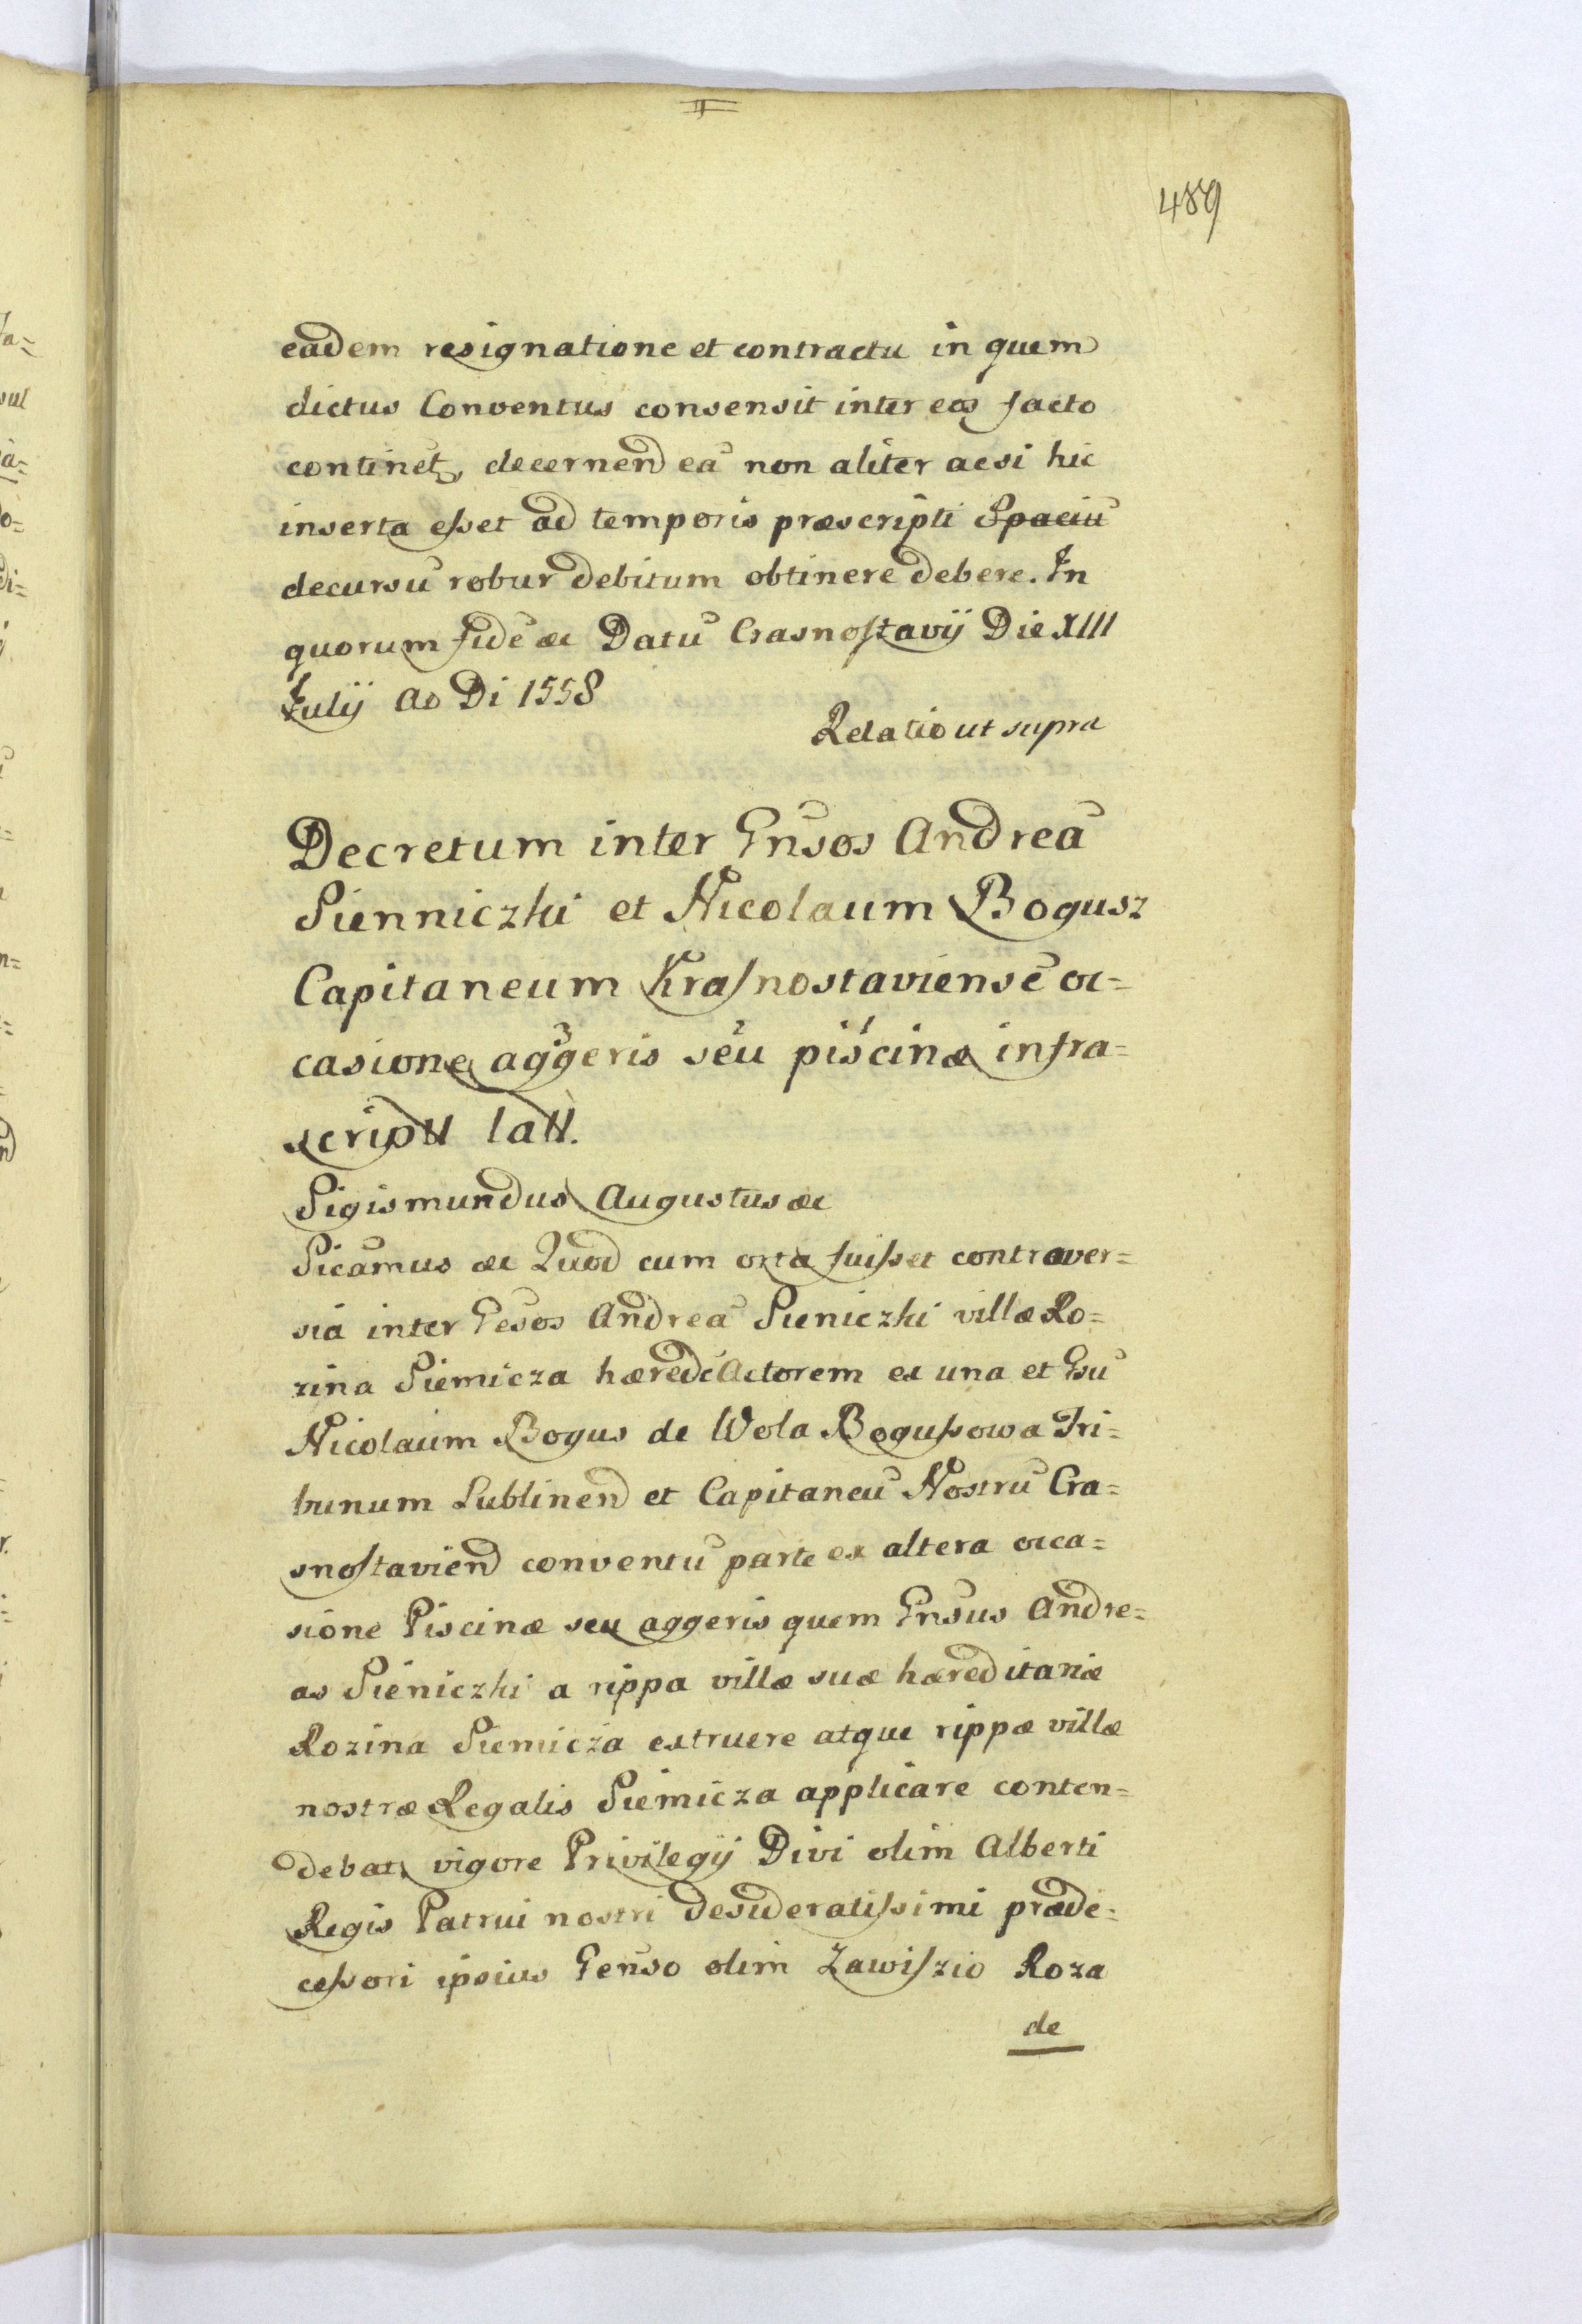 489
eadem resignatione et contractu in quem
dictus Conventus consensit inter eos facto
continet, decernend ea non aliter acsi hic
inserta esset ad temporis præscripti Spaciu
decursu robur debitum obtinere debere. In
quorum fidē &c Datū Crasnostavij Die XIII
Julij Ao Di 1558
Relatio ut supra
Decretum inter Gnsos Andreā
Sienniczki et Nicolaum Bogusz
Capitaneum Krasnostaviensē oc=
casione aggeris seu piscinæ infra=
scriptt latt.
Sigismundus Augustus &c
Sicāmus &c Quod cum orta fuisset controver=
sia inter Gesos Andreā Sieniczki villæ Ro=
zina Siemicza hæredē Actorem ex una et Gsū
Nicolaum Bogus de Wola Bogussowa Tri=
bunum Lublinend et Capitaneū Nostrū Cra=
snostaviend conventū parte ex altera occa=
sione Piscinæ seu aggeris quem Gnsus Andre=
as Sieniczki a rippa villæ suæ hæreditariæ
Rozina Siemicza extruere atque rippæ villæ
nostræ Regalis Siemicza applicare conten=
debat, vigore Privilegij Divi olim Alberti
Regis Patrui nostri desideratissimi præde=
cessori ipsius Genso olim Zawiszio Roza
de